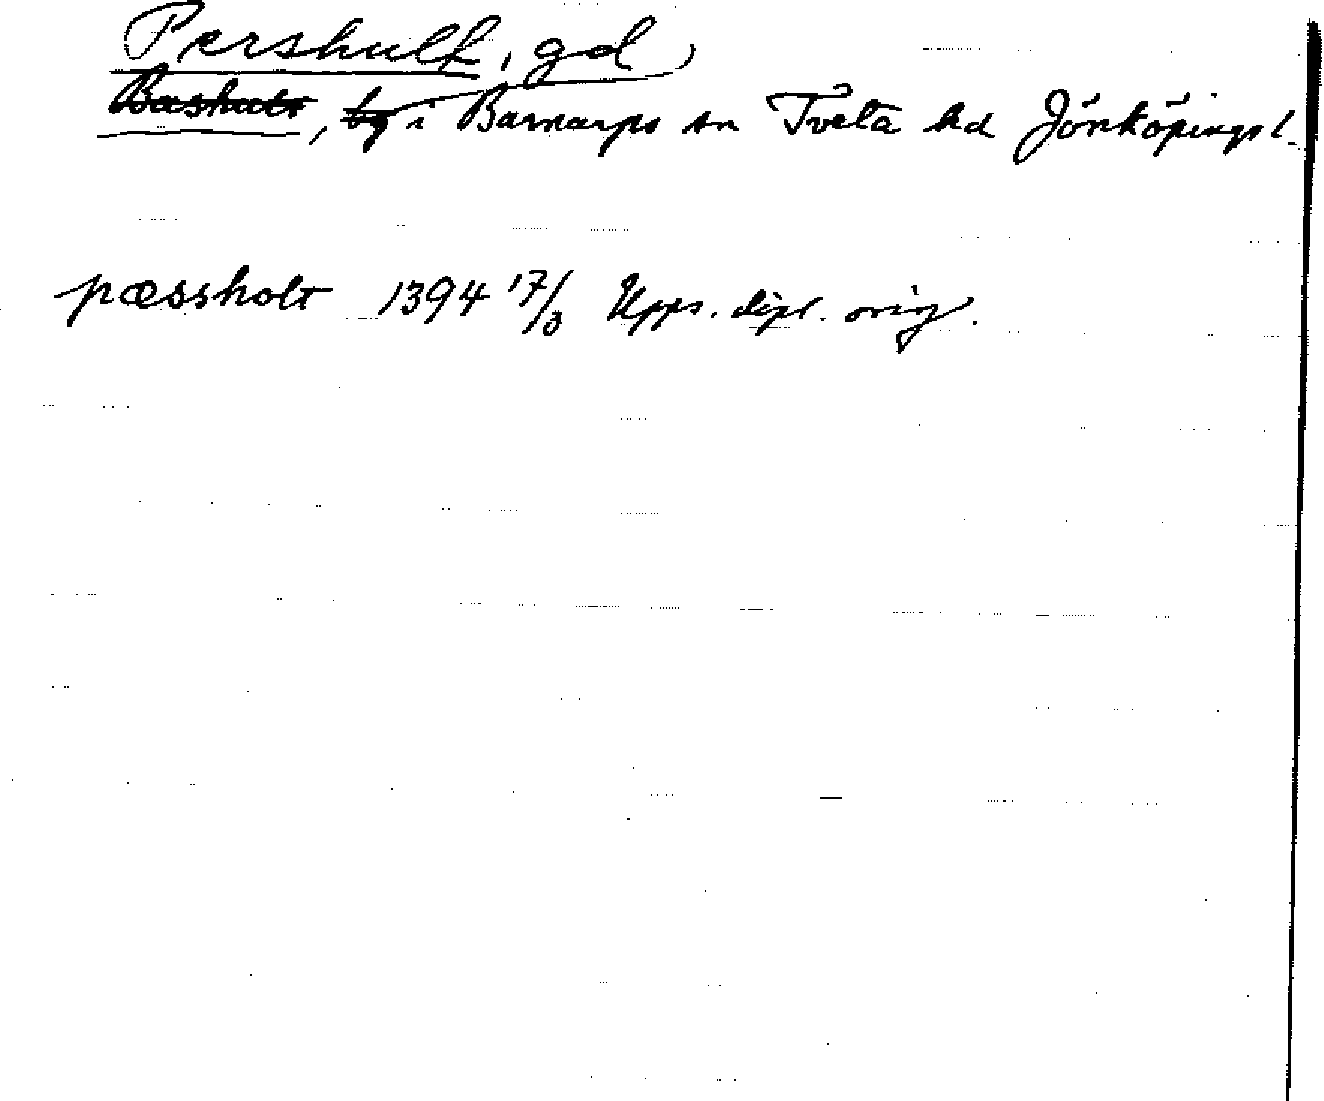 Pershult, gd
Bashult, by i Barnarps sn Tveta hd Jönköpings l.
pæssholt 1394 17/3 Upps. dipl. orig.